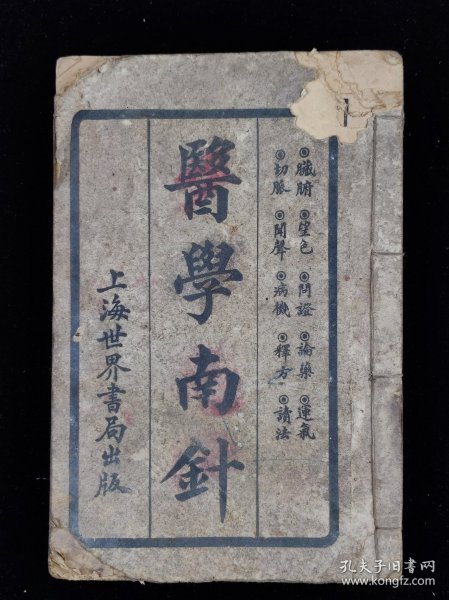 ◎臟腑◎望色◎問證◎論藥◎運氣
◎切脈◎聞聲◎病機◎釋方◎讀法
醫學南針
上海世界書局出版
孔夫子旧书网
www.kongfz.com